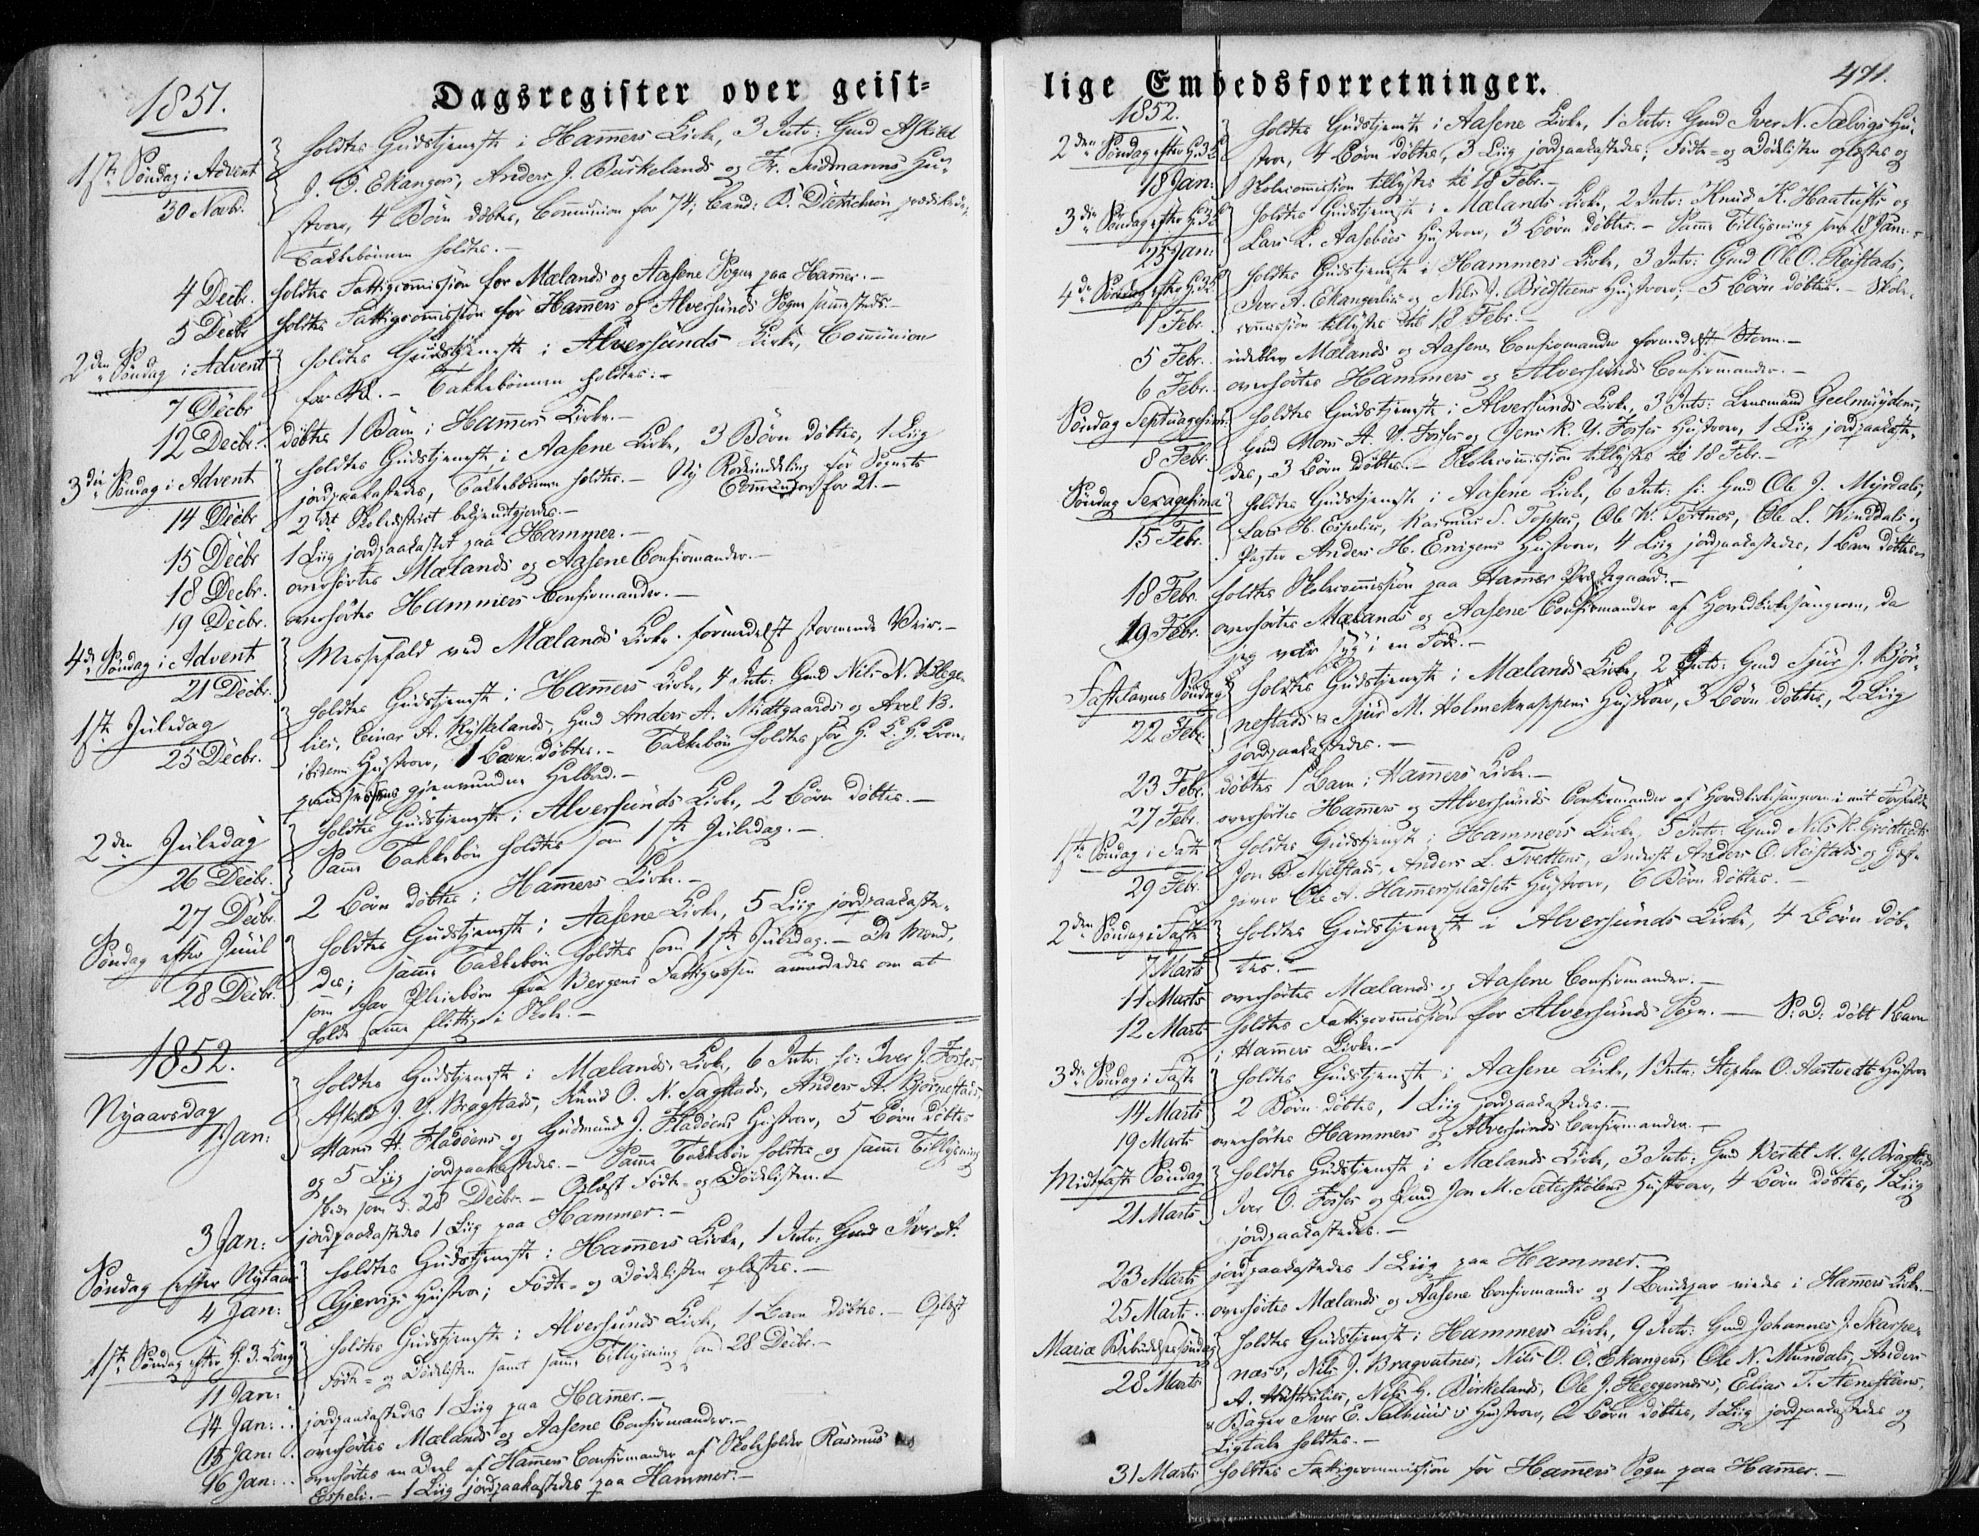 Dagsregister over geist=
1851.
1ste Søndag i Advent
30 Novbr.
holdtes Gudstjeneste i Hammers Kirke, 3 Intr: Gmd Askild
J. Ö. Ekangers, Anders J. Birkelands og Fr. Sudmanns Hu=
struer, 4 Børn döbtes, Communion for 74; Cand: B. Dietrichson prædikede,
Takkebönnen holdtes.-
4 Decbr. holdtes Fattigcommission for Mælands og Aasene Sogne paa Hammer.-
5 Decbr holdtes Fattigcommission for Hammers og Alversunds Sogne sammesteds.-
2den Søndag i Advent
7 Decbr
holdtes Gudstjeneste i Alversunds Kirke, Communion
for 48.- Takkebönnen holdtes.-
12 Decbr. döbtes 1 Barn i Hammers Kirke.-
3die Søndag i Advent
14 Decbr
holdtes Gudstjeneste i Aasene Kirke, 3 Børn döbtes, 1 Liig
jordpaakastedes, Takkebönnen holdtes.- Ny Rodeinddeling for Sognets
2det Skoledistrict bekjendtgjordes.- Communion for 21.-
15 Decbr 1 Liig jordpaakastet paa Hammer.-
18 Decbr. overhörtes Mælands og Aasene Confirmander.-
19 Decbr. overhörtes Hammers Confirmander.-
4de Søndag i Advent
21 Decbr.
Messefald ved Mælands Kirke formedelst stormende Veir.-
1ste Juledag
25 Decbr.
holdtes Gudstjeneste i Hammers Kirke, 4 Intr: Gmd Nils N. Hlege=
lies, Einar A. Ryskelands, Hmd Anders A. Midtgaards og Axel B.
ibidem Hustruer, 1 Barn döbtes.- Takkebön holdtes for H. K. H. Kron=
prindsessens gjenvundne Helbred.-
2den Juledag
26 Decbr.
holdtes Gudstjeneste i Alversunds Kirke, 2 Børn döbtes.-
Samme Takkebön holdtes som 1ste Juledag.-
27 Decbr. 2 Børn döbtes i Hammers Kirke.-
Søndag efter Juul
28 Decbr.
holdtes Gudstjeneste i Aasene Kirke, 5 Liig jordpaakaste=
des; samme Takkebön holdtes som 1ste Juledag.- De Mænd,
som har Pleiebörn fra Bergens Fattigvæsen anmodedes om at
holde samme flittige i Skole.-
1852.
Nyaarsdag
1 Jan:
holdtes Gudstjeneste i Mælands Kirke, 6 Intr: sc: Iver J. Fosses,
Askild J. Y. Bragstads, Knud O. N. Sagstads, Anders A. Bjørnestads,
Mons H. Fladöens og Gudmund J. Fladöens Hustruer, 5 Børn döbtes
og 5 Liig jordpaakastedes.- Samme Takkebön holdtes og samme Tillysning
skede som d. 28 Decbr.- Oplæst Födte- og Dödelisten.-
3 Jan: jordpaakastedes 1 Liig paa Hammer.-
Søndag efter Nytaar
4 Jan:
holdtes Gudstjeneste i Hammers Kirke, 1 Intr: Gmd Iver A.
Gjervigs Hustrue; Födte- og Dödelisten oplæstes.-
1ste Søndag efter H. 3. Kong
11 Jan:
holdtes Gudstjeneste i Alversunds Kirke, 1 Barn döbtes.- Oplæst
Födte- og Dödelisten samt samme Tillysning som 28 Decbr.-
14 Jan: jordpaakastedes 1 Liig paa Hammer.-
15 Jan: overhörtes Mælands og Aasene Confirmander.-
16 Jan: overhörtes en Deel af Hammers Confirmander af Skoleholder Rasmus
Espeli.- 1 Liig jordpaakastedes paa Hammer.-
lige Embedsforretninger.
491.
1852.
2den Søndag efter H. 3 K.
18 Jan:
holdtes Gudstjeneste i Aasene Kirke, 1 Intr: Gmd Iver N. Sælvigs Hu=
strue, 4 Børn döbtes, 3 Liig jordpaakastedes; Födte- og Dödelisten oplæstes og
Skolecommission tillystes til 18 Febr.-
3die Søndag efter H. 3 K.
25 Jan:
holdtes Gudstjeneste i Mælands Kirke, 2 Intr: Knud K. Haatufts og
Lars L. Aaseböes Hustruer, 3 Børn döbtes.- Samme Tillysning som 18 Jan.-
4de Søndag efter H. 3 K.
1 Febr.
holdtes Gudstjeneste i Hammers Kirke, 3 Intr: Gmd Ole O. Reistads,
Iver A. Ekangerlies og Nils J. Bredsteens Hustruer; 5 Børn döbtes.- Skole=
commission tillystes til 18 Febr.-
5 Febr. udeblev Mælands og Aasene Confirmander formedelst Storm.-
6 Febr. overhörtes Hammers og Alversunds Confirmander.-
Søndag Septuagesima
8 Febr.
holdtes Gudstjeneste i Alversunds Kirke, 3 Intr: Lensmand Geelmuydens,
Gmd Mons A. Y. Fosses og Jens K. Y. Fosses Hustruer, 1 Liig jordpaakaste=
des, 3 Børn döbtes.- Skolecommission tillystes til 18 Febr.-
Søndag Sexagesima
15 Febr.
holdtes Gudstjeneste i Aasene Kirke, 6 Intr: sc: Gmd Ole J. Myrdals,
Lars H. Espelies, Rasmus S. Toppes, Ole W. Tertnes, Ole L. Winddals og
Paster Anders H. Envigens Hustruer, 4 Liig jordpaakastedes, 1 Barn döbtes.-
18 Febr. holdtes Skolecommission paa Hammer Præstegaard.-
19 Febr. overhörtes Mælands og Aasene Confirmander af Hovedkirkesangeren, da
jeg var syg i en Fod.-
Fastelavns Søndag
22 Febr.
holdtes Gudstjeneste i Mælands Kirke, 2 Intr: Gmd Sjur J. Björ=
nestads & Sjur M. Holmeknappens Hustruer, 3 Børn döbtes, 2 Liig
jordpaakastedes.-
23 Febr. döbtes 1 Barn i Hammers Kirke.-
27 Febr. overhörtes Hammers og Alversunds Confirmander af Hovedkirkesangeren i mit Forfald.
1ste Søndag i Faste
29 Febr.
holdtes Gudstjeneste i Hammers Kirke, 5 Intr: Gmd Nils K. Grödtveits,
Jon B. Mjelstads, Anders L. Tvedtens, Inderst Anders O. Reistads og Gjæst=
giver Ole A. Hammerspladsets Hustruer, 6 Børn döbtes.-
2den Søndag i Faste
7 Marts
holdtes Gudstjeneste i Alversunds Kirke, 4 Børn döb=
tes.-
11 Marts overhörtes Mælands og Aasene Confirmander.-
12 Marts holdtes Fattigcommission for Alversunds Sogn.- S. D. döbt 1 Barn
i Hammers Kirke.-
3die Søndag i Faste
14 Marts
holdtes Gudstjeneste i Aasene Kirke, 1 Intr: Stephen O. Aastvedts Hustrue
2 Børn döbtes, 1 Liig jordpaakastedes.-
19 Marts overhörtes Hammers og Alversunds Confirmander.-
Midfaste Søndag
21 Marts
holdtes Gudstjeneste i Mælands Kirke, 3 Intr: Gmd Bertel M. Y. Bragstads
Iver O. Fosses og Hmd Jon M. Sæterstölens Hustruer, 4 Børn döbtes, 1 Liig
jordpaakastedes.-
23 Marts jordpaakastedes 1 Liig paa Hammer.-
25 Marts overhörtes Mælands og Aasene Confirmander og 1 Brudepar viedes i Hammers Kirke.-
Mariæ Bebudelsessøndag
28 Marts
holdtes Gudstjeneste i Hammers Kirke, 9 Intr: Gmd Johannes J. Skarpe=
næs's, Nils J. Bragvatnes, Nils O. Ö. Ekangers, Ole N. Mundals, Anders
A. Hustrulies, Nils H. Birkelands, Ole J. Heggernæs's, Elias T. Steenestöens,
& Bager Iver E. Salhuus's Hustruer, 2 Børn döbtes, 1 Liig jordpaakastedes og
Ligtale holdtes.-
31 Marts holdtes Fattigcommission for Hammers Sogn paa Hammer.-